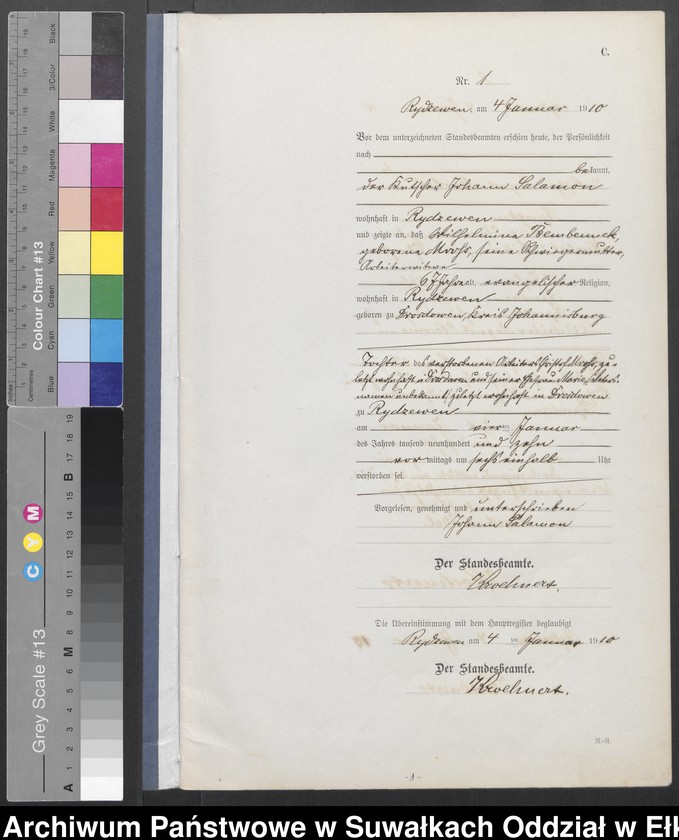 C.
Nr. 1
Rydzewen am 4 Januar 1910
Vor dem unterzeichneten Standesbeamten erschien heute, der Persönlichkeit
nach
bekannt,
der Kutscher Johann Salamon
wohnhaft in Rydzewen
und zeigte an, daß Wilhelmine
geborene seine Schwiegermutter,
Arbeiterwitwe
67 Jahre alt, evangelischer Religion,
wohnhaft in Rydzewen
geboren zu Drosdowen, Kreis Johannisburg
Tochter des verstorbenen Arbeiters
letzt wohnhaft und seiner Ehefrau Marie,
namen unbekannt, zuletzt wohnhaft in Drosdowen
zu Rydzewen
am vier Januar
des Jahres tausend neunhundert und zehn
vor mittags um sechs einhalb Uhr
verstorben sei.
Vorgelesen, genehmigt und unterschrieben
Johann Salamon
Der Standesbeamte.
Die Übereinstimmung mit dem Hauptregister beglaubigt
Rydzewen am 4 ten Januar 1910
Der Standesbeamte.
-1-
Colour Chart #13
Blue
Cyan
Green
Yellow
Red
Magenta
White
3/Color
Black
Inches
Centimetres
Grey Scale #13
C Y M
A 1 2 3 4 5 6 M 8 9 10 11 12 13 14 15 B 17 18 19
Archiwum Państwowe w Suwałkach Oddział w Eł